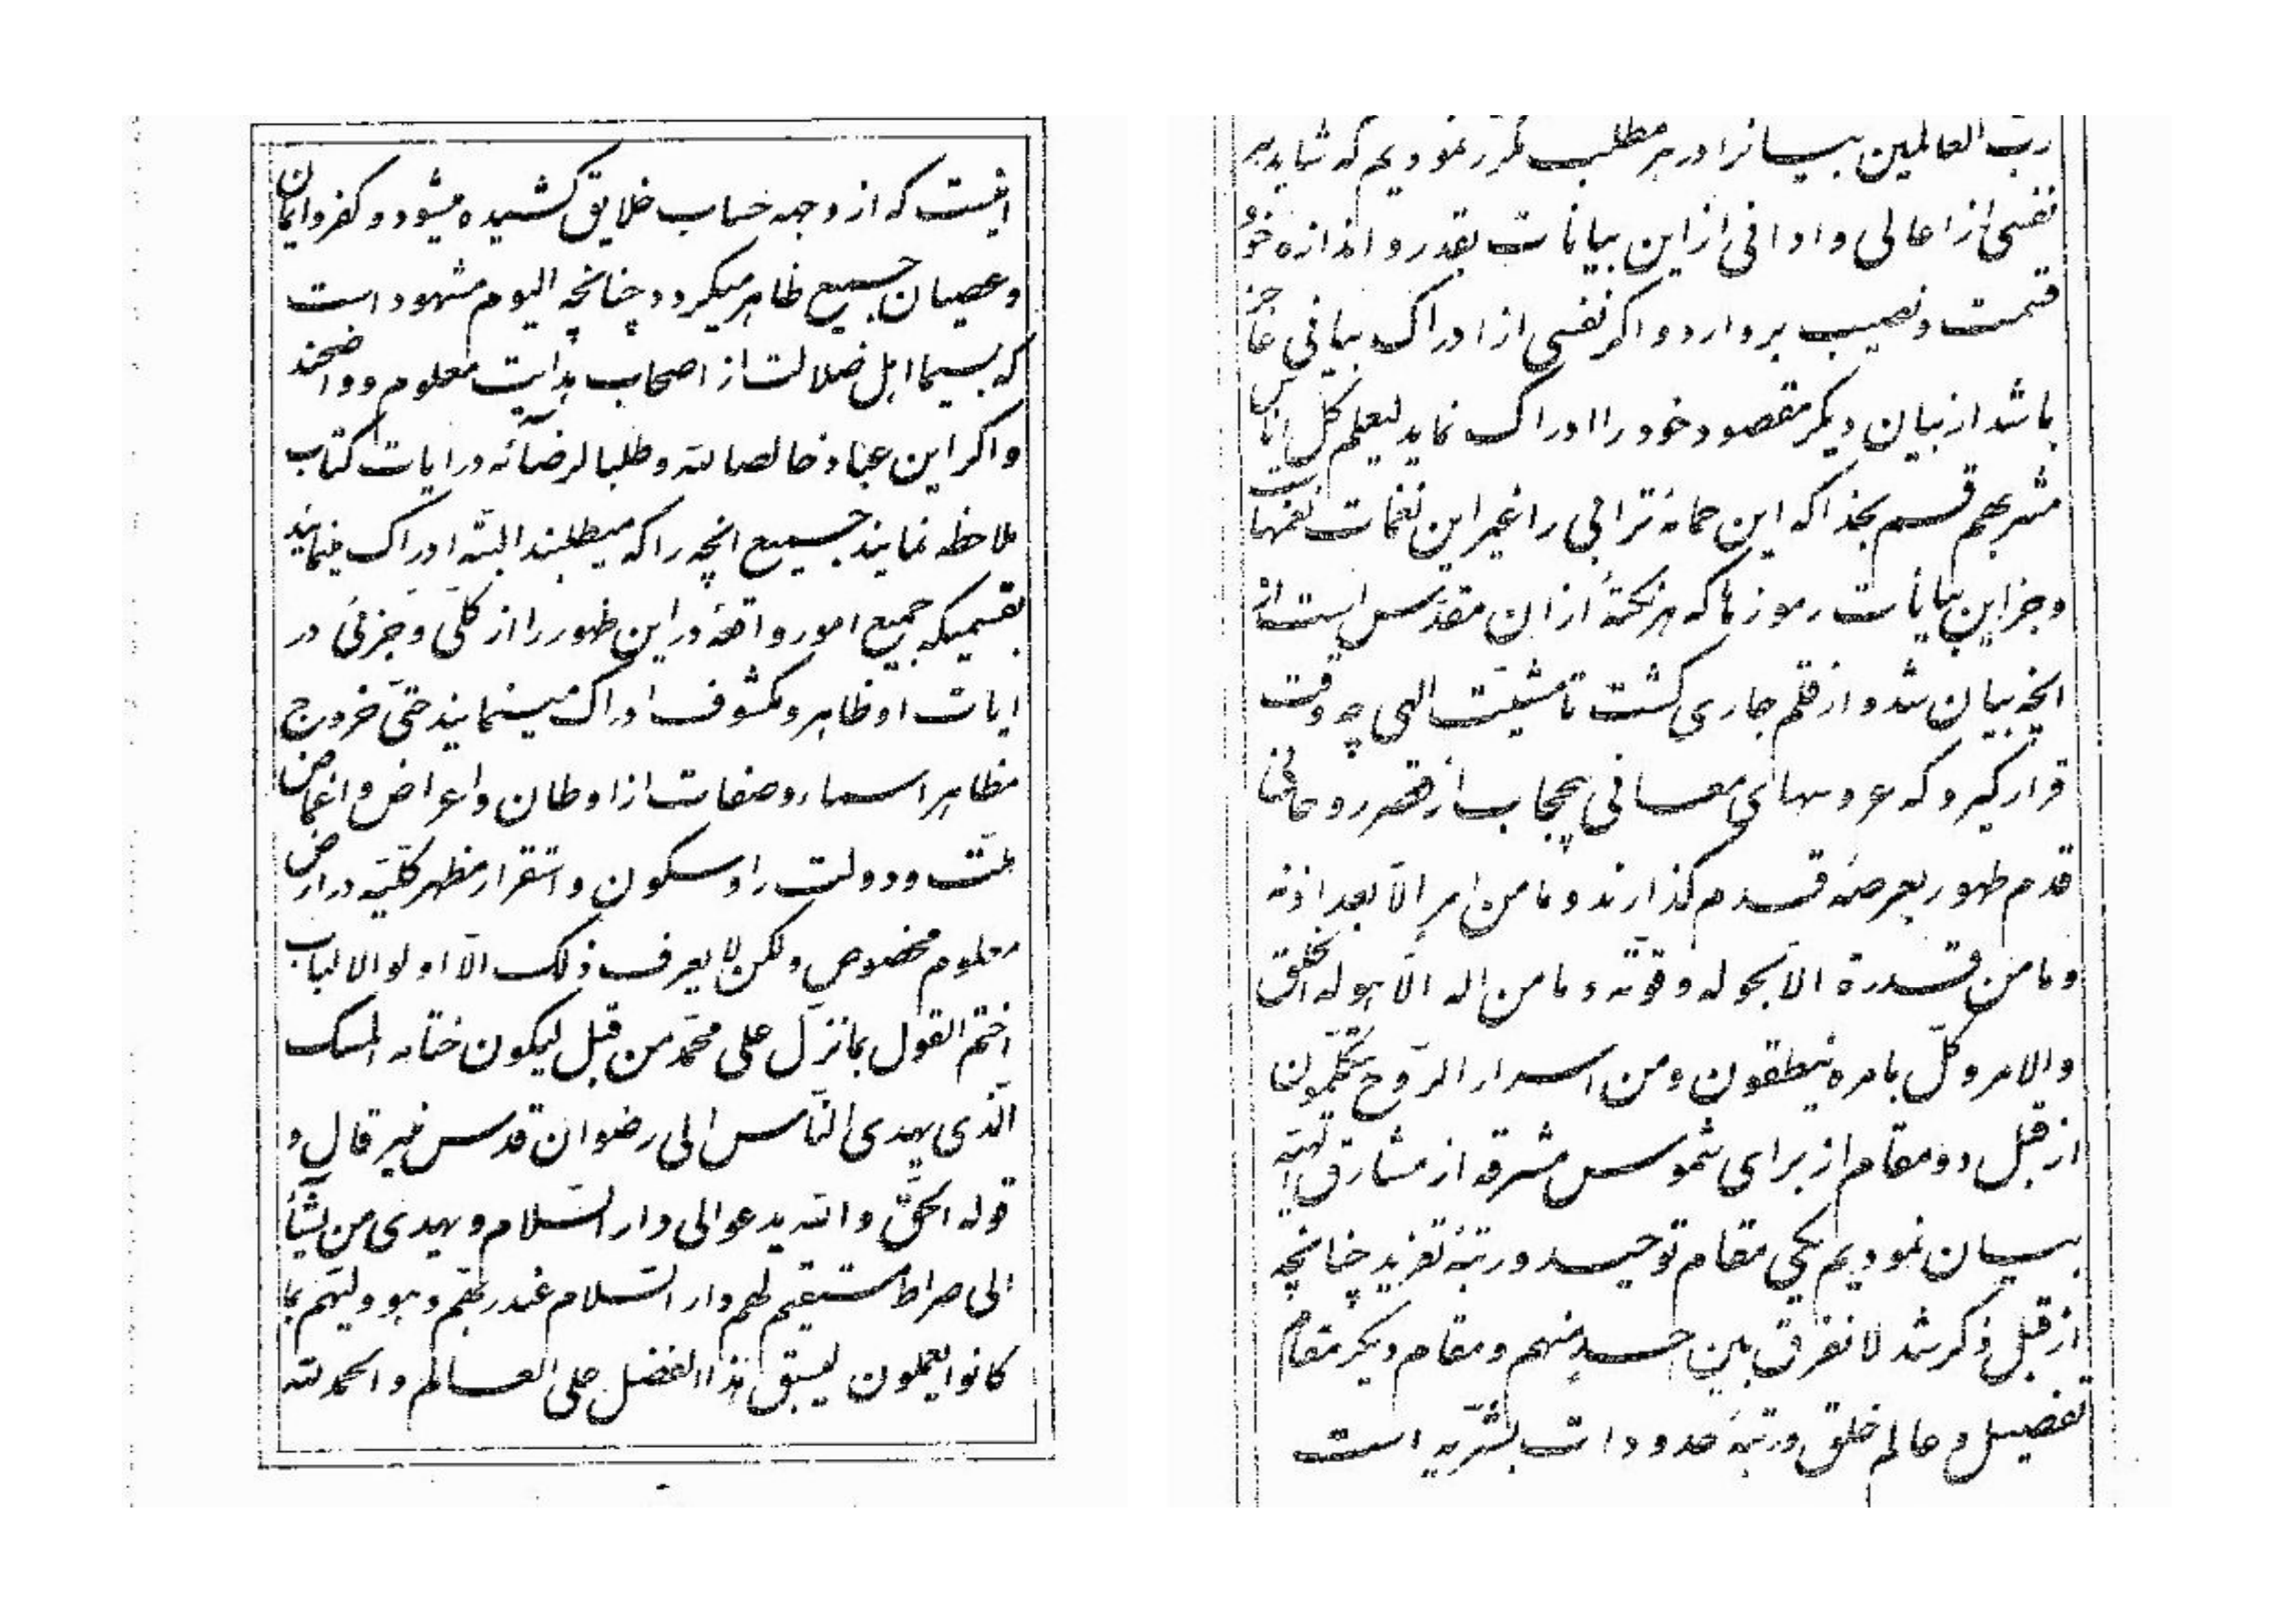 رب العالمین بیانرا در هر مطلب مکرر نمودیم که شاید هر
نفسی از اعالی و ادانی از این بیانات بقدر و اندازه خود
قسمت و نصیب بردارد و اکر نفسی از ادراک بیانی عاجز
باشد از بیان دیکر مقصود خود را ادراک نماید لیعلم کل اناس
مشربهم قسم بخدا که این حمامه ترابی را غیر این نغمات نغمها
و جز این بیانات رموزها که هر نکتهٔ از ان مقدس است از
انچه بیان شد و از قلم جاری کشت تا مشیّت الهی چه وقت
قرار کیرد که عروسهای معانی بیحجاب از قصر روحانی
قدم ظهور بعرصهٔ قدم کذارند و ما من امر الّا بعد اذنه
و ما من قدرة الا بحوله و قوّته و ما من اله الّا هو له الخلق
والامر و کلّ بامره ینطقون و من اسرار الرّوح یتکلّمون
از قبل دو مقام از برای شموس مشرقه از مشارق الهیّه
بیان نمودیم یکی مقام توحید و رتبهٔ تفرید چنانچه
از قبل ذکر شد لا نفرق بین احد منهم و مقام دیکر مقام
تفصیل و عالم خلق و رتبهٔ حدودات بشریّه است
اینست که از وجه حساب خلایق کشیده میشود و کفر و ایمان
و عصیان جمیع ظاهر میکردد چنانچه الیوم مشهود است
که بسیما اهل ضلالت از اصحاب هدایت معلوم و واضحند
و اکر این عباد خالصا لله و طلبا لرضائه در ایات کتاب
ملاحظه نمایند جمیع انچه را که میطلبند البتّه ادراک مینمایند
بقسمیکه جمیع امور واقعهٔ در این ظهور را از کلّی و جزئی در
ایات او ظاهر و مکشوف ادراک مینمایند حتّی خروج
مظاهر اسماء و صفات از اوطان و اعراض و اغماض
ملّت و دولت را و سکون و استقرار مظهر کلّیّه در ارض
معلوم مخصوص ولکن لا یعرف ذلک الّا اولو الالباب
اختم القول بما نزّل علی محمّد من قبل لیکون ختامه المسک
الّذی یهدی النّاس الی رضوان قدس منیر قال و
قوله الحقّ و الله یدعو الی دار السّلام و یهدی من یشآء
الی صراط مستقیم لهم دار السّلام عند ربّهم و هو ولیّهم بما
کانوا یعملون لیسبق هذا الفضل علی العالم و الحمد لله